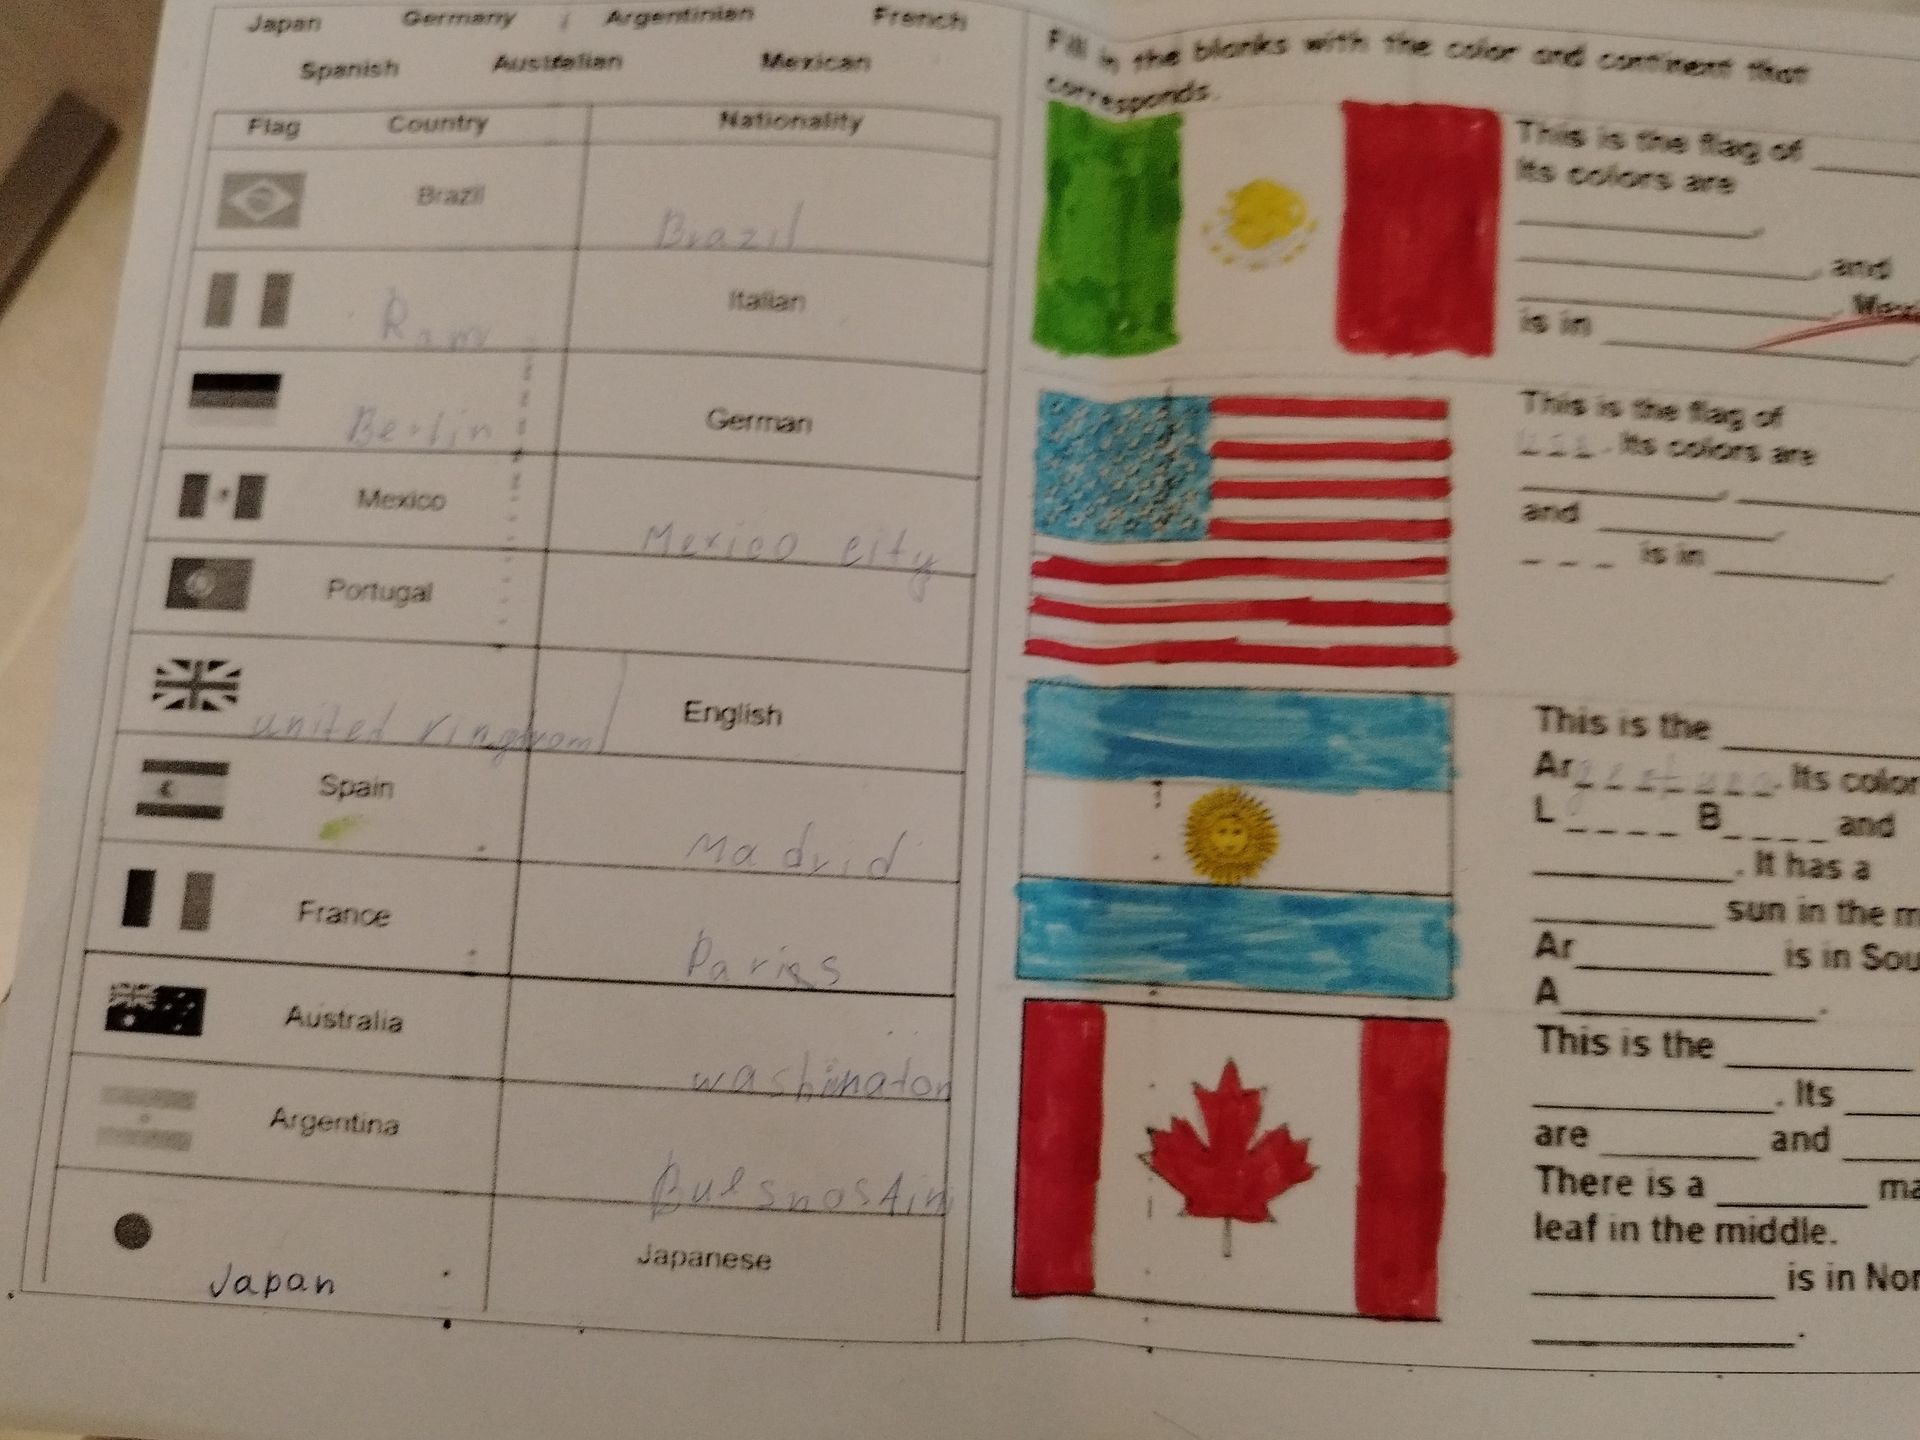 Japan Germany Argentinian French
Spanish Australian Mexican
Flag Country Nationality
Brazil Brazil
Ram Italian
Berlin German
Mexico Mexico city
Portugal
united kingdom English
Spain Madrid
France Paries
Australia washinaton
Argentina BuesnosAin
Japan Japanese
Fill in the blanks with the color and continent that
corresponds.
This is the flag of ____
Its colors are
____,
____, and
____. Mexi
is in ____.
This is the flag of
_ _ _. Its colors are
____, ____
and ____.
_ _ _ is in ____.
This is the ____
Argentina. Its color
L _ _ _ _ B _ _ _ _ and
____. It has a
____ sun in the m
Ar____ is in Sou
A____.
This is the ____
____. Its ____
are ____ and ____
There is a ____ ma
leaf in the middle.
____ is in Nor
____.